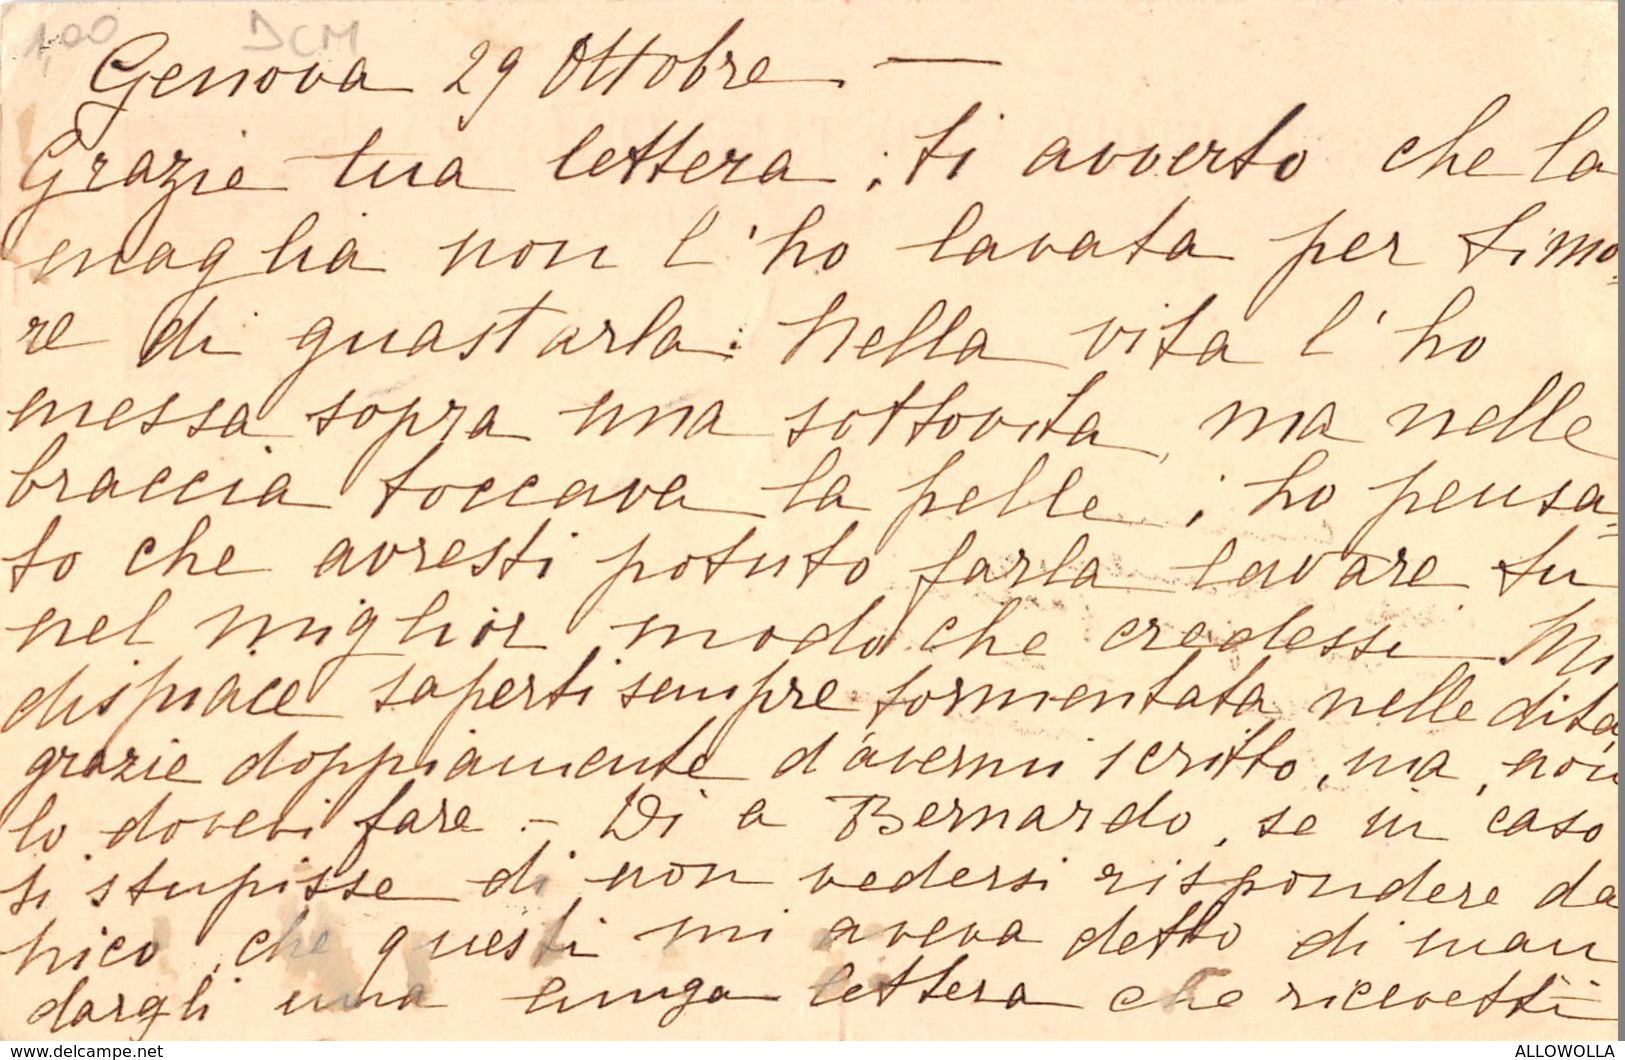 1,00 DCM
Genova 29 Ottobre. —
Grazie tua lettera; ti avverto che la
maglia non l'ho lavata per timo=
re di guastarla: Nella vita l'ho
messa sopra una sottovita, ma nelle
braccia toccava la pelle; ho pensa=
to che avresti potuto farla lavare tu
nel miglior modo che credessi. Mi
dispiace saperti sempre tormentata nelle dita,
grazie doppiamente d'avermi scritto, ma, non
lo dovevi fare. — Di a Bernardo, se in caso
si stupisse di non vedersi rispondere da
Nico, che questi mi aveva detto di man
dargli una lunga lettera che ricevetti
ALLOWOLLA
https://www.delcampe.net